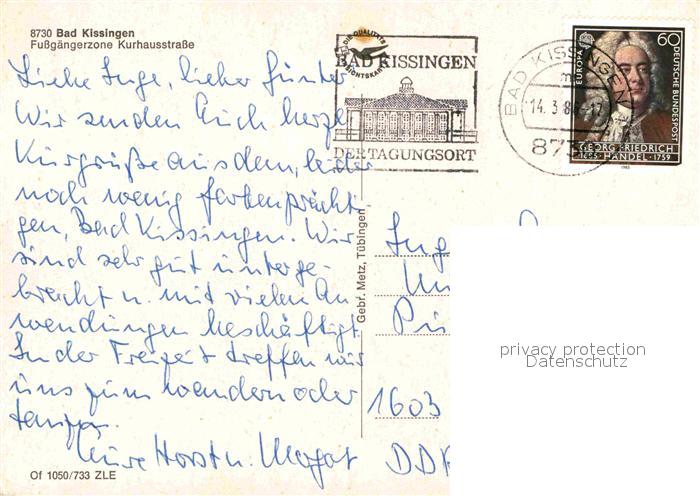 8730 Bad Kissingen
Fußgängerzone Kurhausstraße
Liebe Inge, lieber Günter
Wir senden Euch herzl.
Kurgrüße aus dem, leider
noch wenig farbenprächti-
gen, Bad Kissingen. Wir
sind sehr gut unterge-
bracht u. mit vielen An-
wendungen beschäftigt.
In der Freizeit treffen wir
uns zum wandern oder
tanzen.
Eure Horst u. Margot
Of 1050/733 ZLE
Gebr. Metz, Tübingen
BAD KISSINGEN
DER TAGUNGSORT
BAD KISSINGEN
14. 3. 86-17
873
EUROPA
60
DEUTSCHE BUNDESPOST
GEORG FRIEDRICH
1685 HÄNDEL 1759
Ing
1603
DDR
privacy protection
Datenschutz